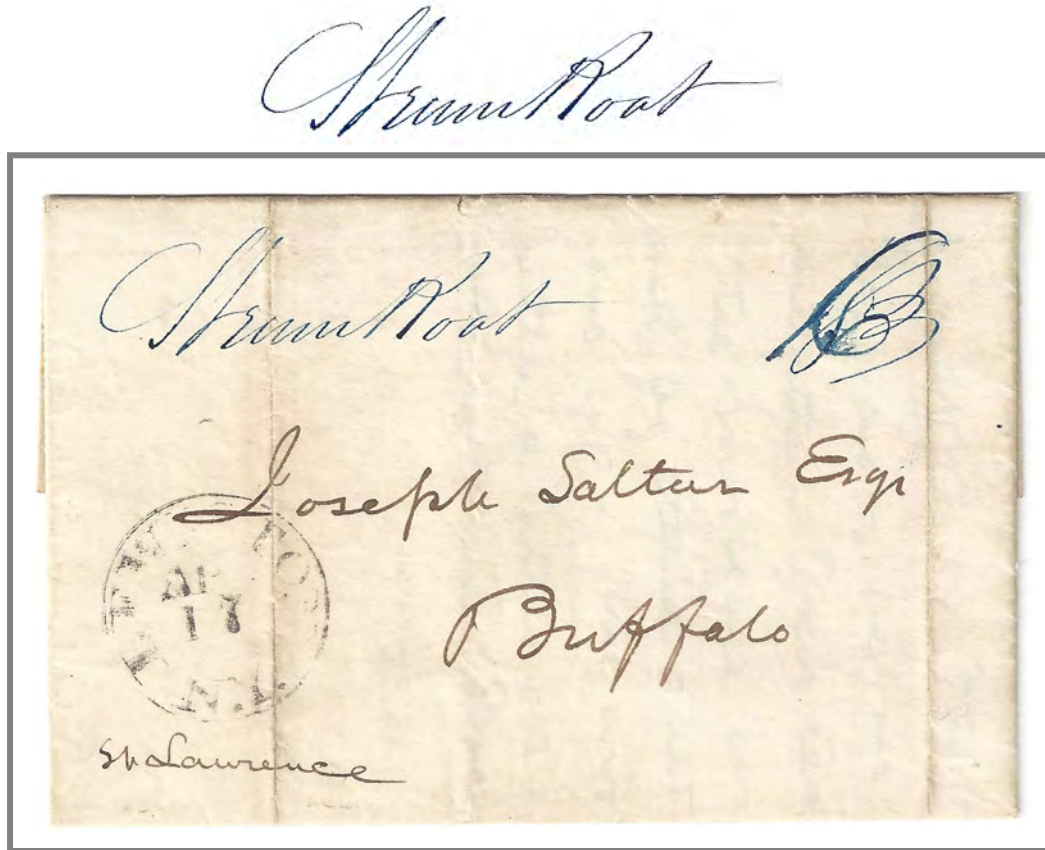 Steam Boat
Steam Boat
Joseph Salter Esqr
Buffalo
LEWISTON
AP
17
N.Y.
St Lawrence